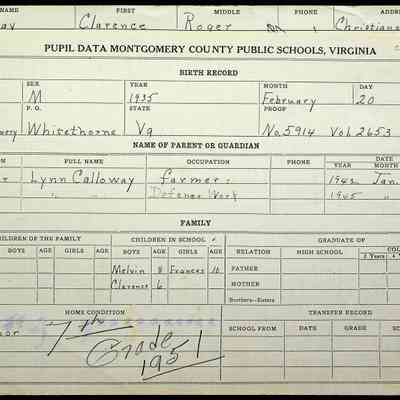 NAME FIRST MIDDLE PHONE ADDR
ay Clarence Roger Christians
PUPIL DATA MONTGOMERY COUNTY PUBLIC SCHOOLS, VIRGINIA
BIRTH RECORD
SEX YEAR MONTH DAY
M 1935 February 20
P. O. STATE PROOF
Whitethorne Va No. 5914 Vol. 2653
NAME OF PARENT OR GUARDIAN
FULL NAME OCCUPATION PHONE DATE
YEAR MONTH
Lynn Calloway farmer 1942 Jan.
" Defense Work 1945 "
FAMILY
CHILDREN OF THE FAMILY CHILDREN IN SCHOOL GRADUATE OF
BOYS AGE GIRLS AGE BOYS AGE GIRLS AGE RELATION HIGH SCHOOL COL
2 Years 4
Melvin 8 Frances 10 FATHER
Clarence 6 MOTHER
Brothers—Sisters
HOME CONDITION TRANSFER RECORD
oor 7th Grade 1951 SCHOOL FROM DATE GRADE SC